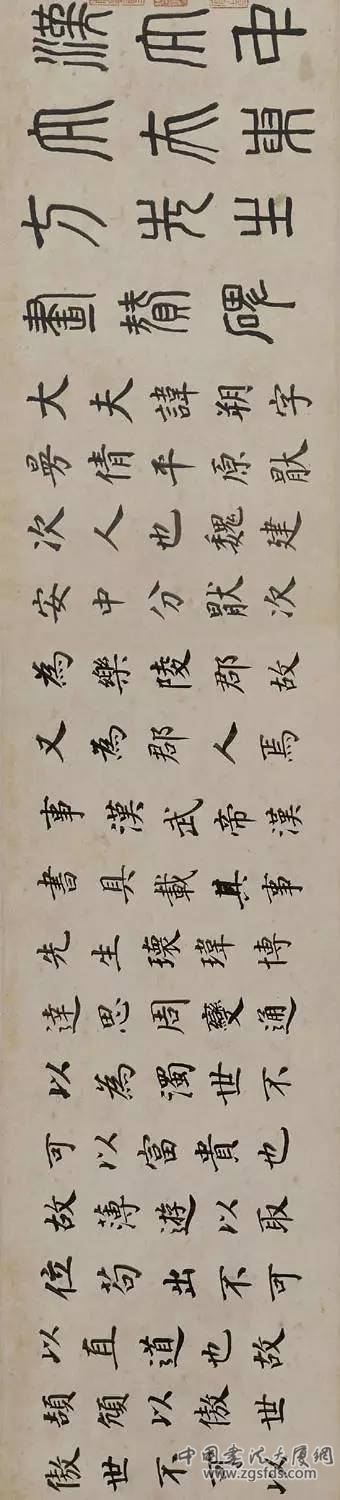 漢大中
大夫東
方先生
畫贊碑
大夫諱朔字
曼倩平原厭
次人也魏建
安中分厭次
為樂陵郡故
又為郡人焉
事漢武帝漢
書具載其事
先生瓌瑋博
達思周變通
以為濁世不
可以富貴也
故薄遊以取
位苟出不可
以直道也故
頡頏以傲世
傲世不可以
中国书法大厦网
www.zgsfds.com